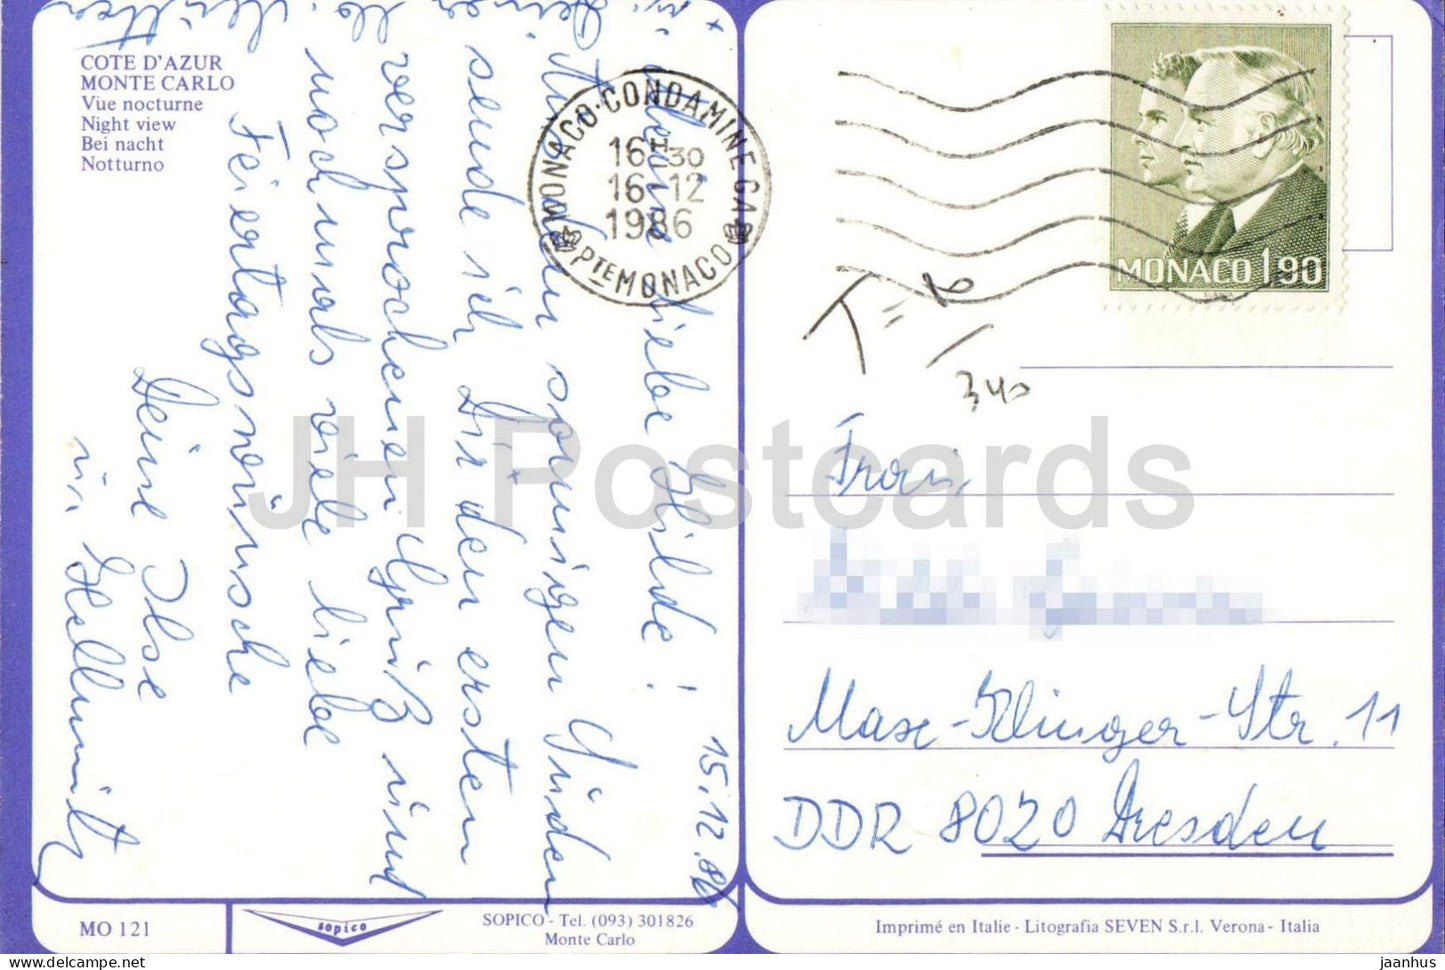 COTE D'AZUR
MONTE CARLO
Vue nocturne
Night view
Bei nacht
Notturno
15.12.86
Meine liebe Hilde!
Aus dem sonnigen Süden
sende ich Dir den ersten
versprochenen Gruß und
nochmals viele liebe
Feiertagswünsche
Deine Ilse
u. Hellmuth
MONACO-CONDAMINE GA
16H30
16-12
1986
PTE MONACO
MONACO 1,90
T =
340
Frau
Max-Klinger-Str. 11
DDR 8020 Dresden
JH Postcards
MO 121
sopico
SOPICO - Tel. (093) 301826
Monte Carlo
Imprimé en Italie - Litografia SEVEN S.r.l. Verona - Italia
jaanhus
delcampe.net